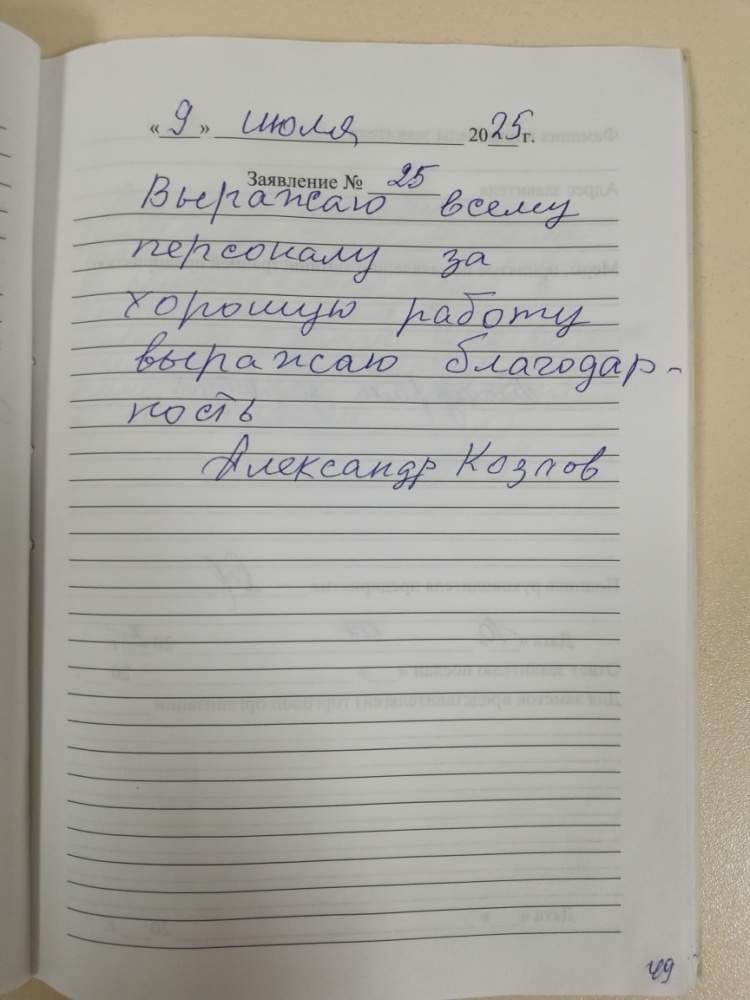 « 9 » июля 2025 г.
Заявление № 25
Выражаю всему
персоналу за
хорошую работу
выражаю благодар-
ность
Александр Козлов
49